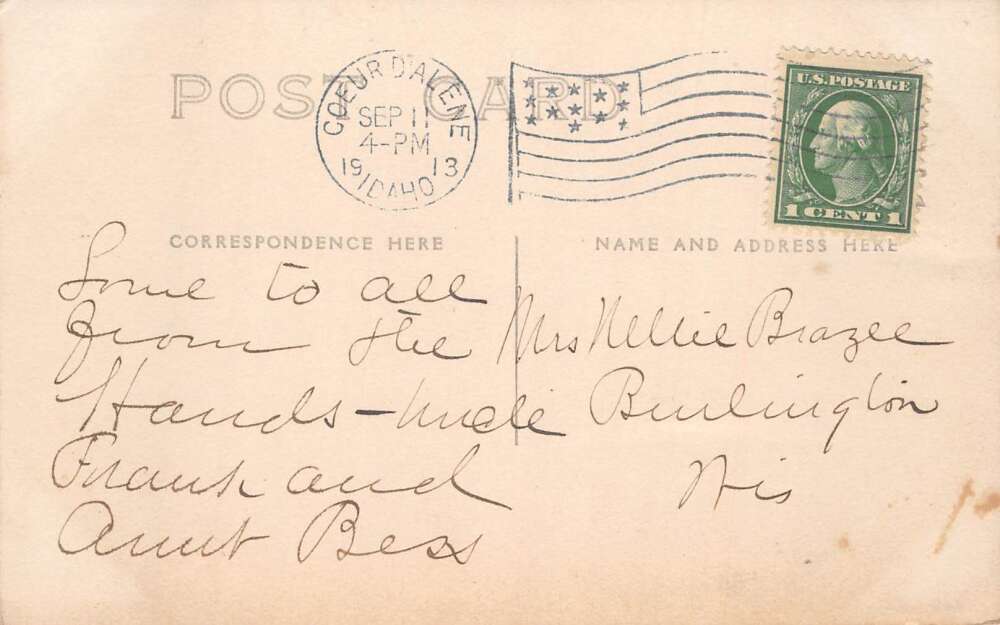 POST CARD
COEUR D'ALENE
SEP 11
4-PM
1913
IDAHO
U.S. POSTAGE
1 CENT 1
CORRESPONDENCE HERE
NAME AND ADDRESS HERE
Love to all
from the
Hands - Uncle
Frank and
Aunt Bess
Mrs Nellie Brazee
Burlington
Wis